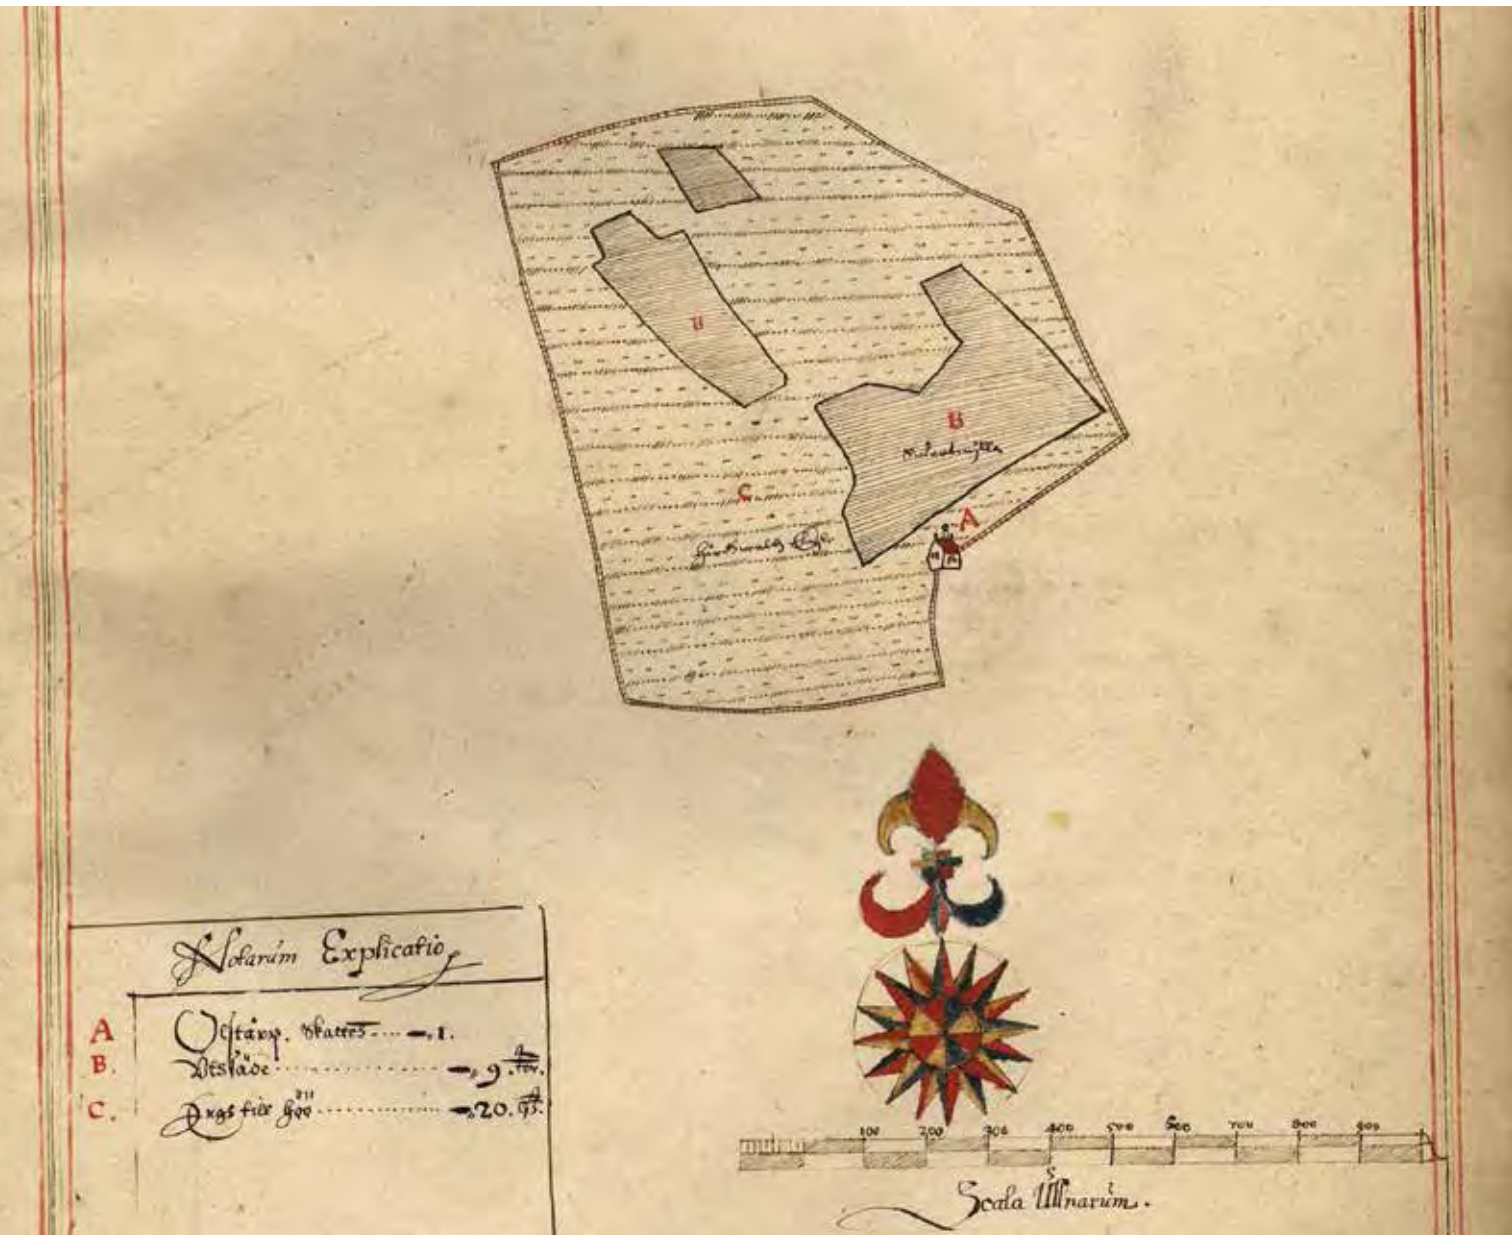 B
B
C
A
Notarum Explicatio
A Olstårp. skattes 1.
B. Vtsäde 9.
C. Ängs till höö 20.
100 200 300 400 500 600 700 800 900
Scala Ullnarum.